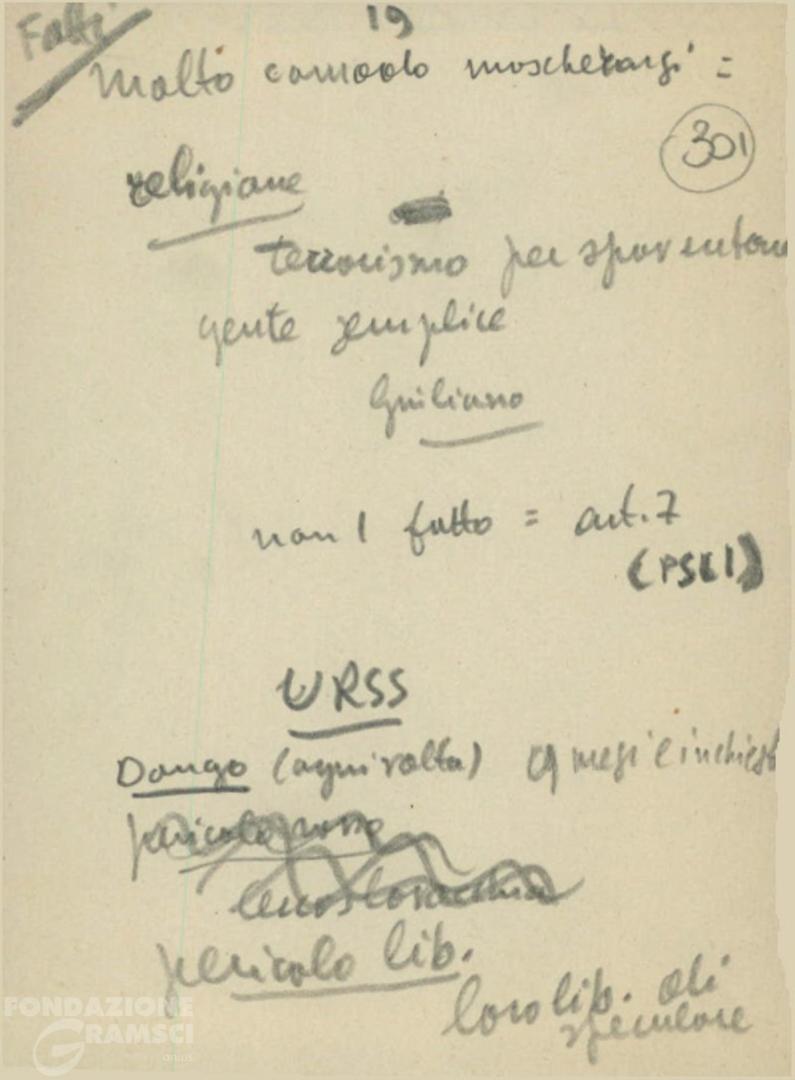 Fatti
19
Molto comodo mascherarsi =
301
religione
terrorismo per spaventare
gente semplice
Giuliano
non 1 fatto = art. 7
(PSLI)
URSS
Dongo (ogni volta) 9 mesi e inchiest
pericolo rosso
cecoslovacchia
pericolo lib.
loro lib. di
speculare
FONDAZIONE
GRAMSCI
onlus